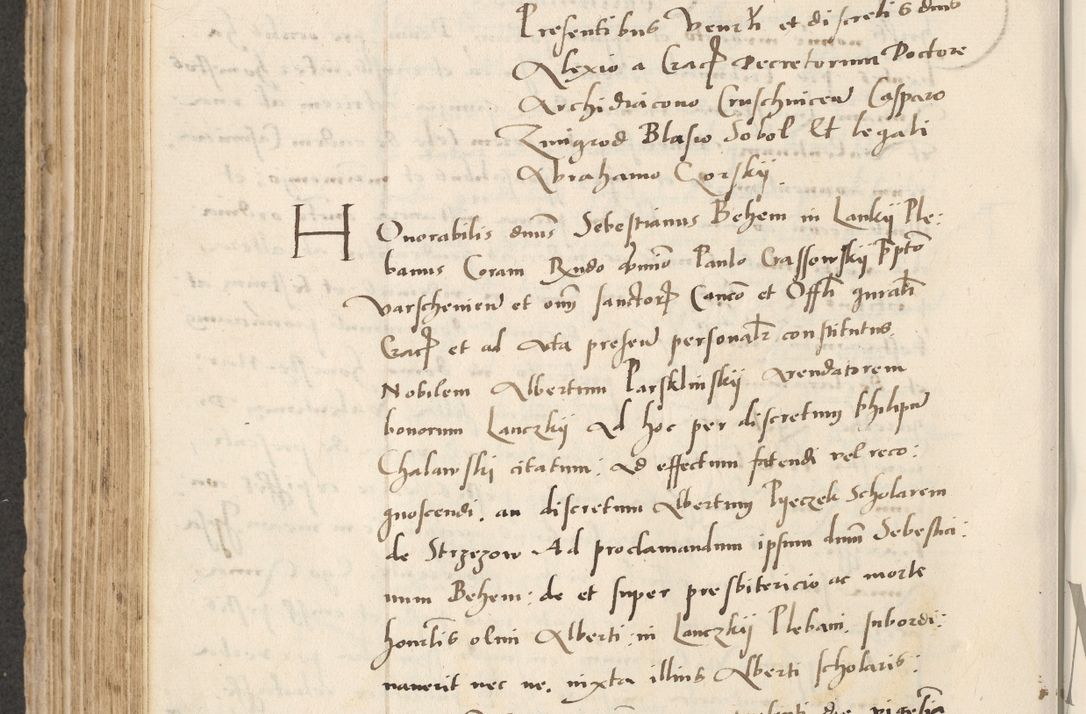 Presentibus Venerli et discretis dnis
Alexio a Crac Decretorum Doctore
Archidiacono Cruschuicen Casparo
Zmigrod Blasio Sobol et legali
Abrahamo Czorskij
Honorabilis dnus Sebestianus Behem in Lankij Ple:
banus Coram Rndo domino Paulo Gassowskij Ppto
varschenien et omi sanctor Canco et Offli gnrali
Crac et ad Acta presen personalr constitutus
Nobilem Albertum Parsklinskij Arendatorem
bonorum Lanczkij Ad hoc per discretum philipu
Chalawski citatum: Ad effectum fatendi vel reco:
gnoscendi. an discretum Albertum Pijeczek Scholarem
de Strzezow Ad proclamandum ipsum dnm Sebesti:
num Behem: de et super presbitericio ac morte
honrlis olim Alberti in Lanczkij Plebani: subordi:
nauerit nec ne. iuxta illius Alberti scholaris: